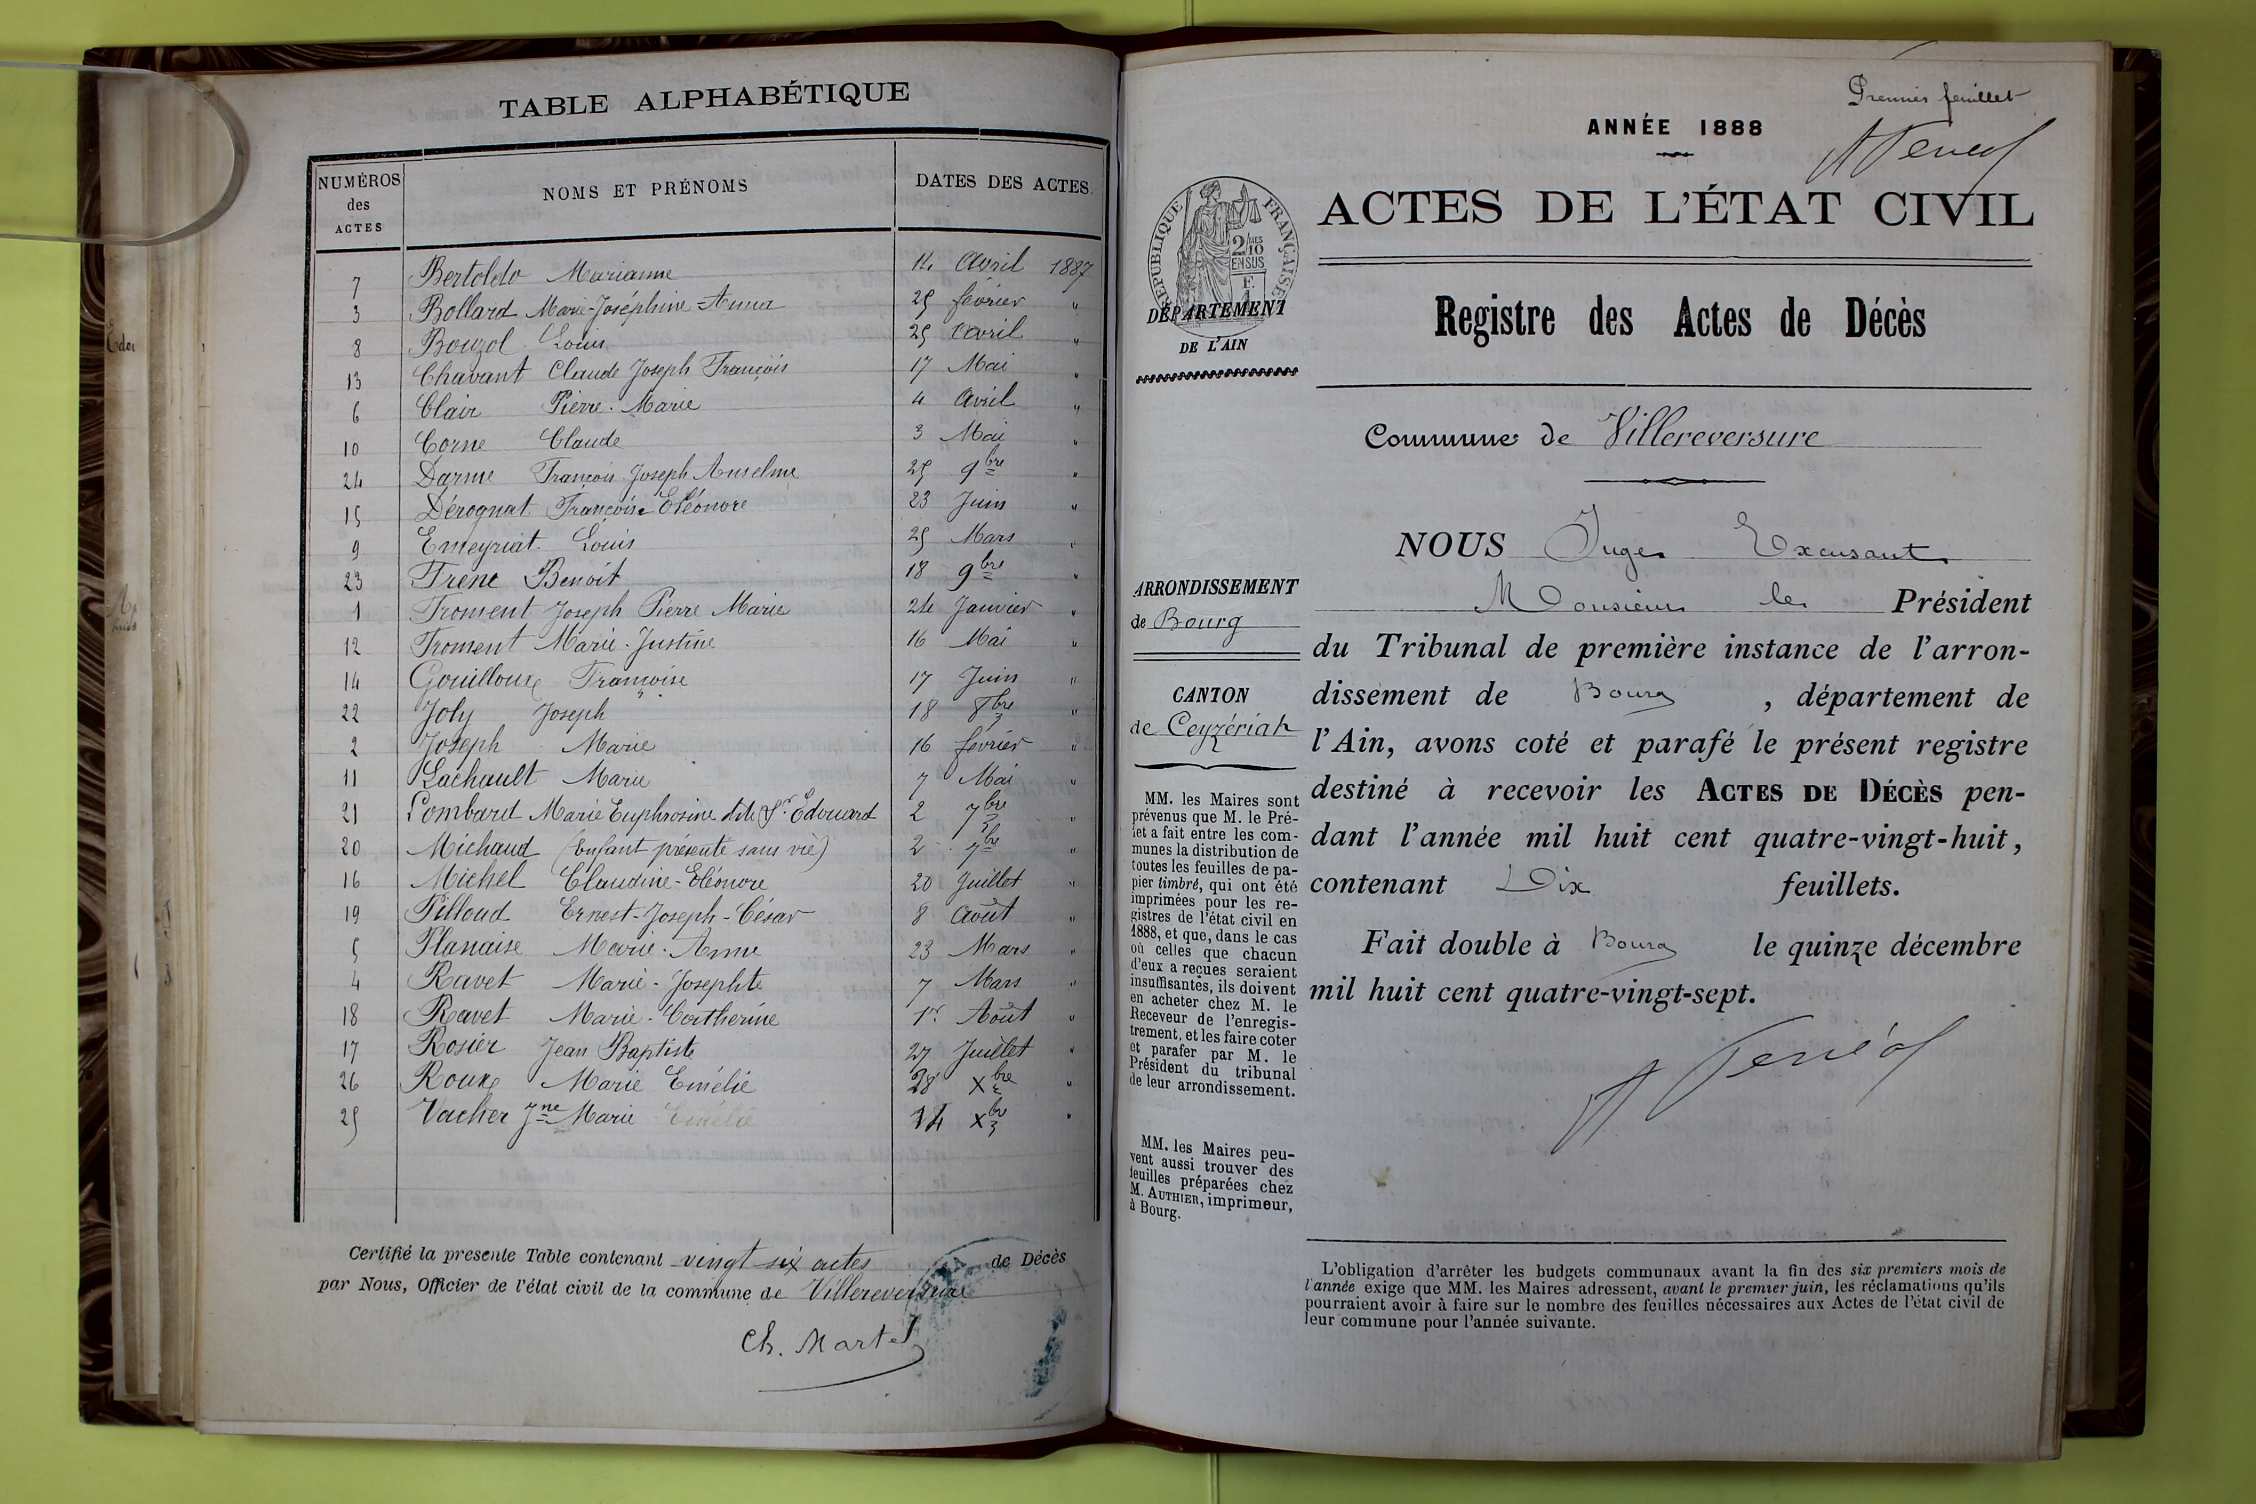 TABLE ALPHABÉTIQUE
NUMÉROS des ACTES NOMS ET PRÉNOMS DATES DES ACTES
7 Bertoldo Marianne 14 Avril 1887
3 Bollard Marie-Joséphine-Anna 25 février "
8 Bouzol Louis 25 Avril "
13 Chavant Claude Joseph François 17 Mai "
6 Clair Pierre-Marie 4 Avril "
10 Corne Claude 3 Mai "
24 Darme François Joseph Anselme 25 9bre "
15 Dérognat Françoise Eléonore 23 Juin "
9 Emeyriat Louis 25 Mars "
23 Frene Benoit 18 9bre "
1 Froment Joseph Pierre Marie 24 Janvier "
12 Froment Marie-Justine 16 Mai "
14 Gouilloux Françoise 17 Juin "
22 Joly Joseph 18 8bre "
2 Joseph Marie 16 février "
11 Lachault Marie 7 Mai "
21 Lombard Marie Euphrosine dite Sr Edouard 2 7bre "
20 Michaud (Enfant présenté sans vie) 2 7bre "
16 Michel Claudine-Eléonore 20 Juillet "
19 Pilloud Ernest-Joseph-César 8 Août "
5 Planaise Marie-Anne 23 Mars "
4 Ravet Marie-Josephte 7 Mars "
18 Ravet Marie-Catherine 1er Août "
17 Rosier Jean Baptiste 27 Juillet "
26 Roux Marie Emélie 28 Xbre "
25 Vacher Jne Marie Emélie 14 Xbre "
Certifié la presente Table contenant vingt six actes de Décès
par Nous, Officier de l'état civil de la commune de Villereversure
Ch. Martel
Premier feuillet
ANNÉE 1888
ACTES DE L'ÉTAT CIVIL
RÉPUBLIQUE FRANÇAISE
2/10 EN SUS
DÉPARTEMENT
DE L'AIN
Registre des Actes de Décès
Commune de Villereversure
NOUS Juge Excusant
Monsieur le Président
du Tribunal de première instance de l'arron-
dissement de Bourg, département de
l'Ain, avons coté et parafé le présent registre
destiné à recevoir les ACTES DE DÉCÈS pen-
dant l'année mil huit cent quatre-vingt-huit,
contenant Dix feuillets.
Fait double à Bourg le quinze décembre
mil huit cent quatre-vingt-sept.
ARRONDISSEMENT
de Bourg
CANTON
de Ceyzériat
MM. les Maires sont
prévenus que M. le Pré-
fet a fait entre les com-
munes la distribution de
toutes les feuilles de pa-
pier timbré, qui ont été
imprimées pour les re-
gistres de l'état civil en
1888, et que, dans le cas
où celles que chacun
d'eux a reçues seraient
insuffisantes, ils doivent
en acheter chez M. le
Receveur de l'enregis-
trement, et les faire coter
et parafer par M. le
Président du tribunal
de leur arrondissement.
MM. les Maires peu-
vent aussi trouver des
feuilles préparées chez
M. AUTHIER, imprimeur,
à Bourg.
L'obligation d'arrêter les budgets communaux avant la fin des six premiers mois de
l'année exige que MM. les Maires adressent, avant le premier juin, les réclamations qu'ils
pourraient avoir à faire sur le nombre des feuilles nécessaires aux Actes de l'état civil de
leur commune pour l'année suivante.